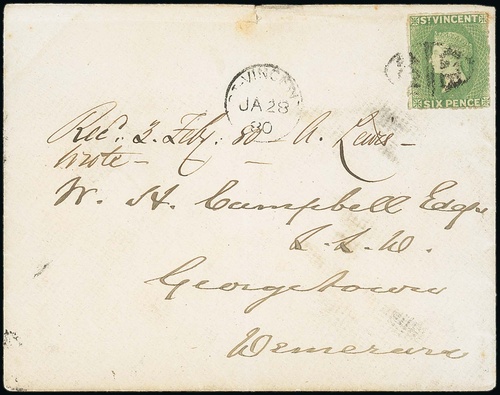 ST VINCENT
SIX PENCE
ST-VINCENT
JA 28
80
Recd: 3. Feby: 80 - A. Laws -
wrote -
W. H. Campbell Edqe
L. L. D.
Georgetown
Demerara